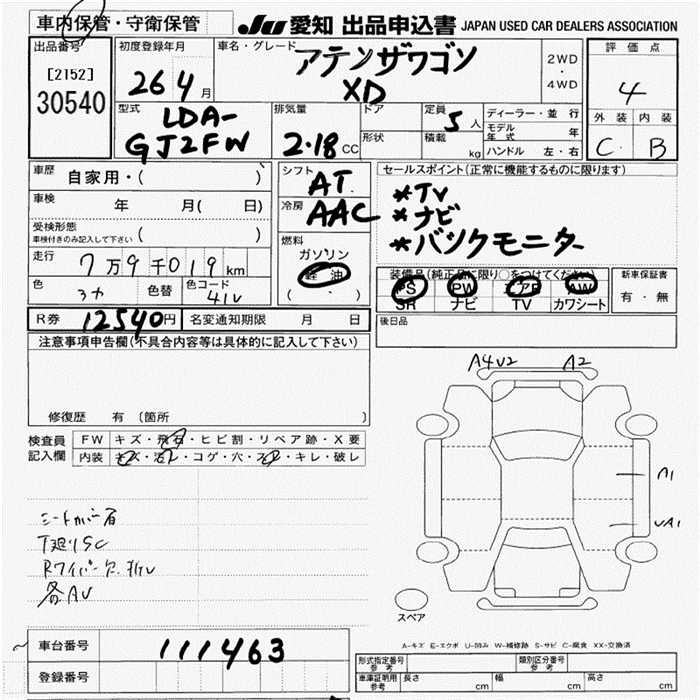 車内保管・守衛保管
JU 愛知 出品申込書 JAPAN USED CAR DEALERS ASSOCIATION
出品番号
[2152]
30540
初度登録年月
26年4月
車名・グレード
アテンザワゴン
XD
2WD
・
4WD
評価点
4
外装 内装
C B
型式
LDA-
GJ2FW
排気量
2.18CC
ドア
形状
定員 5人
積載 kg
ディーラー・並行
モデル年式 年
ハンドル 左・右
車歴 自家用・( )
車検 年 月( 日)
受検形態
車検付きのみ記入して下さい ( )
走行 7万9千019km
色 色替 色コード
41V
R券 12540円 名変通知期限 月 日
シフト AT
冷房 AAC
燃料
ガソリン
軽油
( ・ )
セールスポイント(正常に機能するものに限ります)
*TV
*ナビ
*バックモニター
装備品(純正品に限り○をつけてください)
PS PW エアB AW
SR ナビ TV カワシート
新車保証書
有・無
後日品
注意事項申告欄(不具合内容等は具体的に記入して下さい)
修復歴 有 〔箇所 〕
検査員
記入欄
FW キズ・飛石・ヒビ割・リペア跡・X要
内装 キズ・汚レ・コゲ・穴・スレ・キレ・破レ
A4V2 A2
A1
UA1
スペア
A-キズ E-エクボ U-凹み W-補修跡 S-サビ C-腐食 XX-交換済
車台番号 111463
登録番号
形式指定番号
参考
類別区分番号
参考
車庫証明用
参考
長さ cm 幅 cm 高さ cm